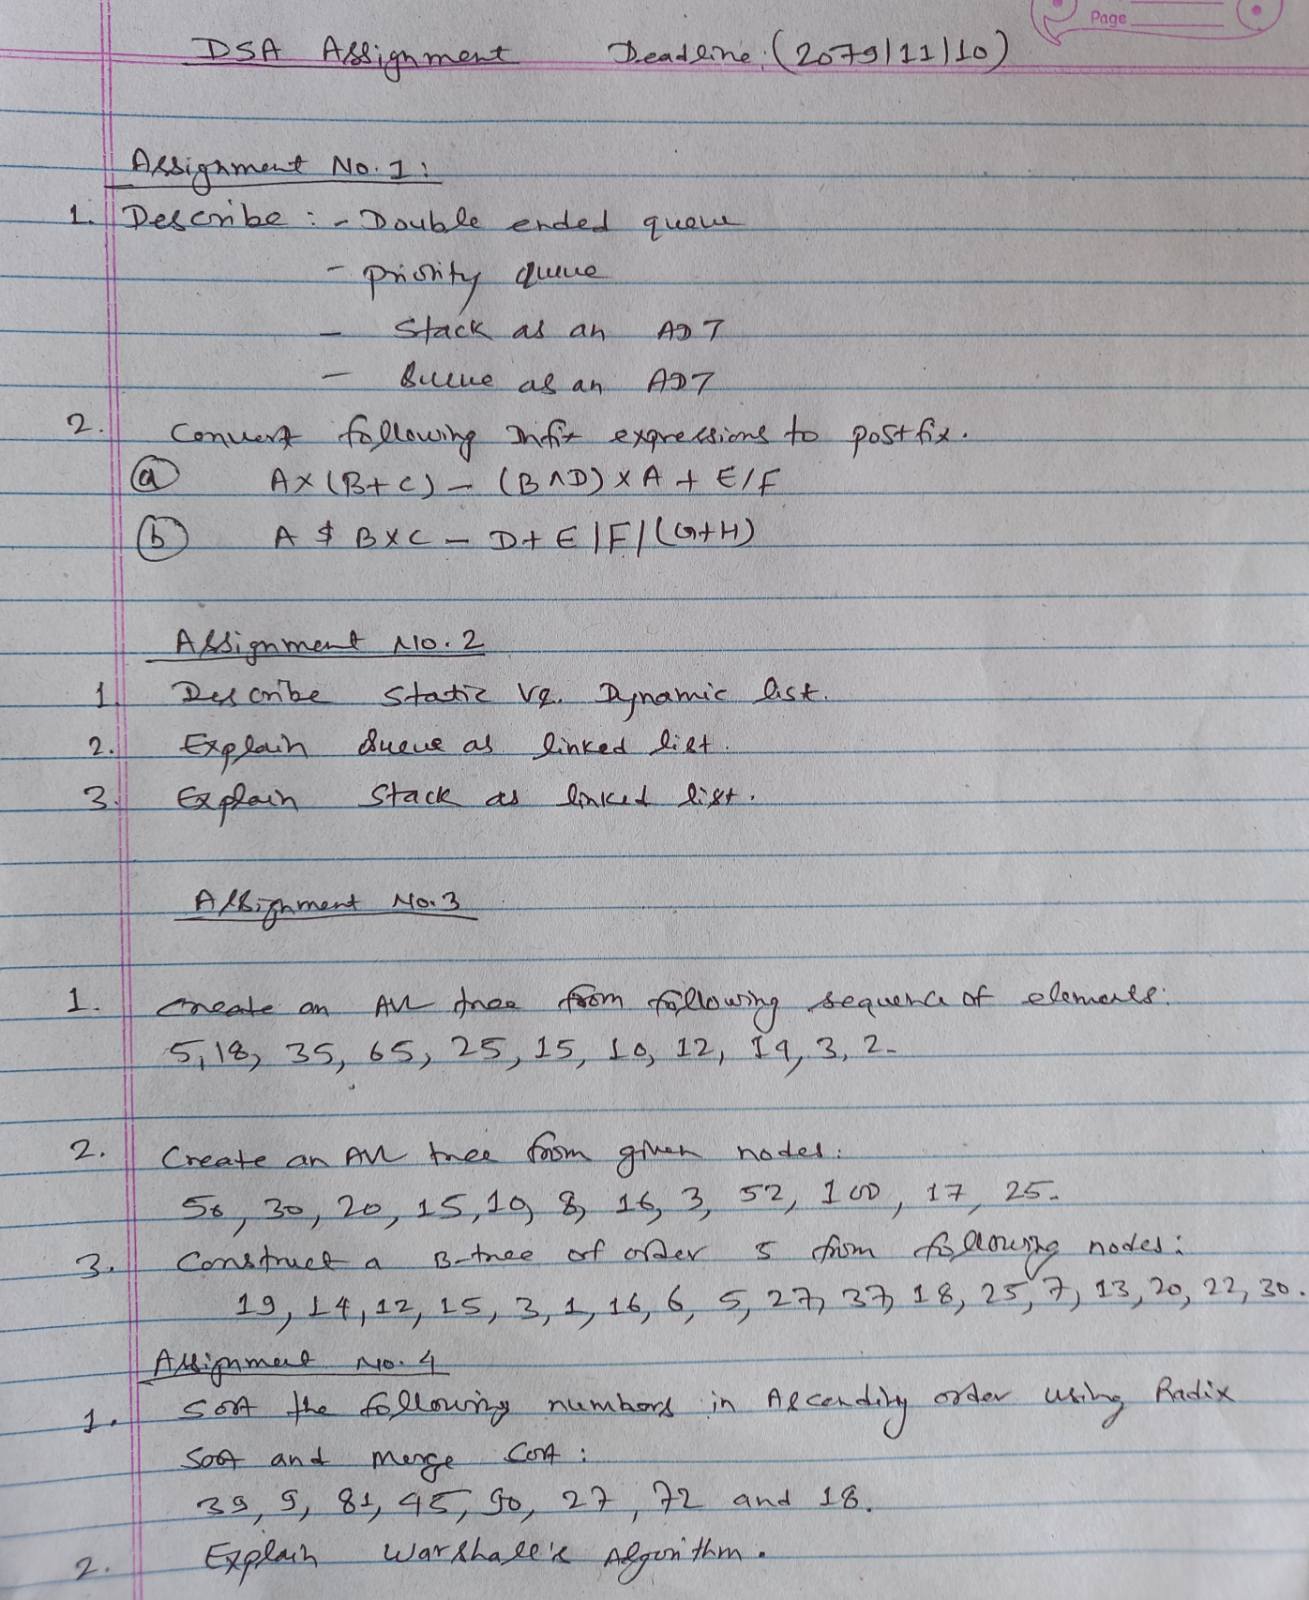 Page
DSA Assignment Deadline: (2079/11/10)
Assignment No. 1:
1. Describe : - Double ended queue
- priority queue
- Stack as an ADT
- Queue as an ADT
2. Convert following Infix expressions to postfix.
(a) A × (B + C) - (B ^ D) × A + E / F
(b) A $ B × C - D + E / F / (G + H)
Assignment No. 2
1. Describe Static Vs. Dynamic list.
2. Explain Queue as linked list.
3. Explain Stack as linked list.
Assignment No. 3
1. Create an AVL tree from following sequence of elements:
5, 18, 35, 65, 25, 15, 10, 12, 19, 3, 2.
2. Create an AVL tree from given nodes:
50, 30, 20, 15, 10, 8, 16, 3, 52, 100, 17, 25.
3. Construct a B-tree of order 5 from following nodes:
19, 14, 12, 15, 3, 1, 16, 6, 5, 27, 37, 18, 25, 7, 13, 20, 22, 30.
Assignment No. 4
1. Sort the following numbers in Ascending order using Radix
Sort and Merge Sort :
39, 9, 81, 45, 90, 27, 72 and 18.
2. Explain Warshall's Algorithm.